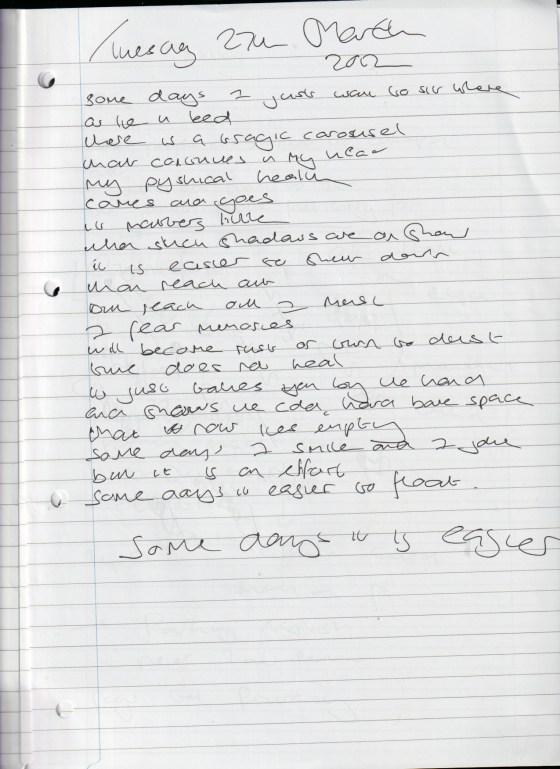 Tuesday 27th March
2012
some days I just want to sit where
or lie in bed
there is a tragic carousel
that continues in my head
my pyshical health
comes and goes
it matters little
when such shadows are on show
it is easier to shut down
than reach out
but reach out I must
I fear memories
will become rust or turn to dust
time does not heal
it just takes you by the hand
and shows the cold, hard bare space
that now lies empty
some days I smile and I joke
but it is an effort
some days it easier to float.
Some days it is easier